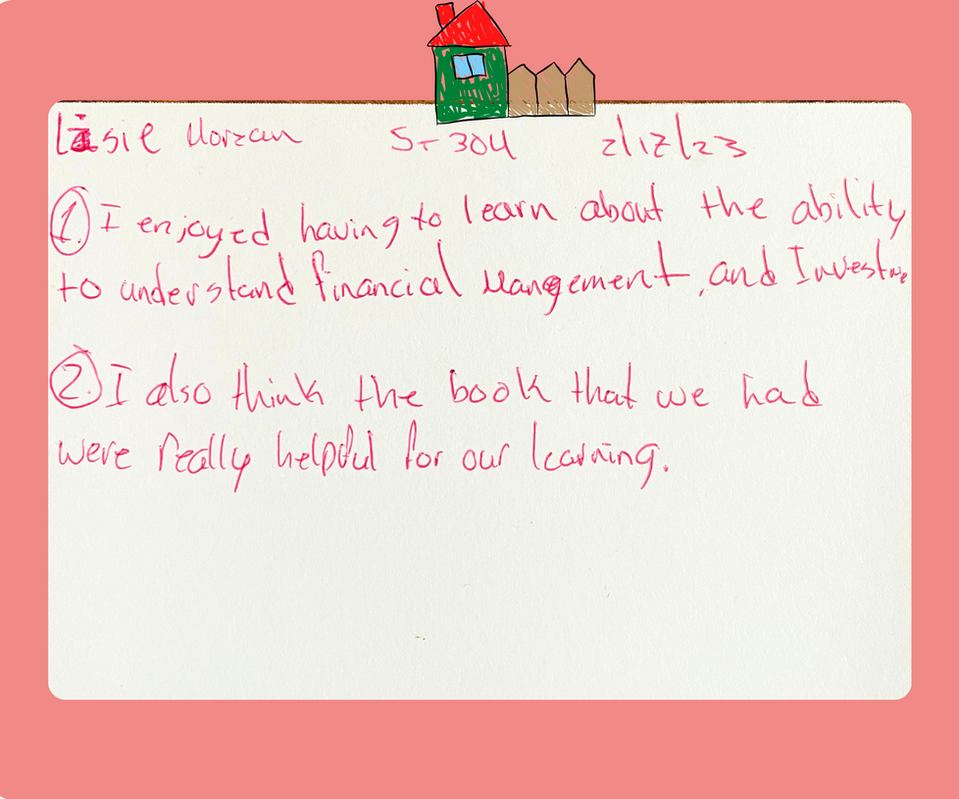 5-304 2/17/23
1. I enjoyed having to learn about the ability
to understand financial Mangement, and
2. I also think the book that we had
were really helpful for our learning.